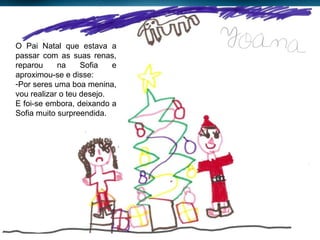 O Pai Natal que estava a
passar com as suas renas,
reparou na Sofia e
aproximou-se e disse:
-Por seres uma boa menina,
vou realizar o teu desejo.
E foi-se embora, deixando a
Sofia muito surpreendida.
Yoana